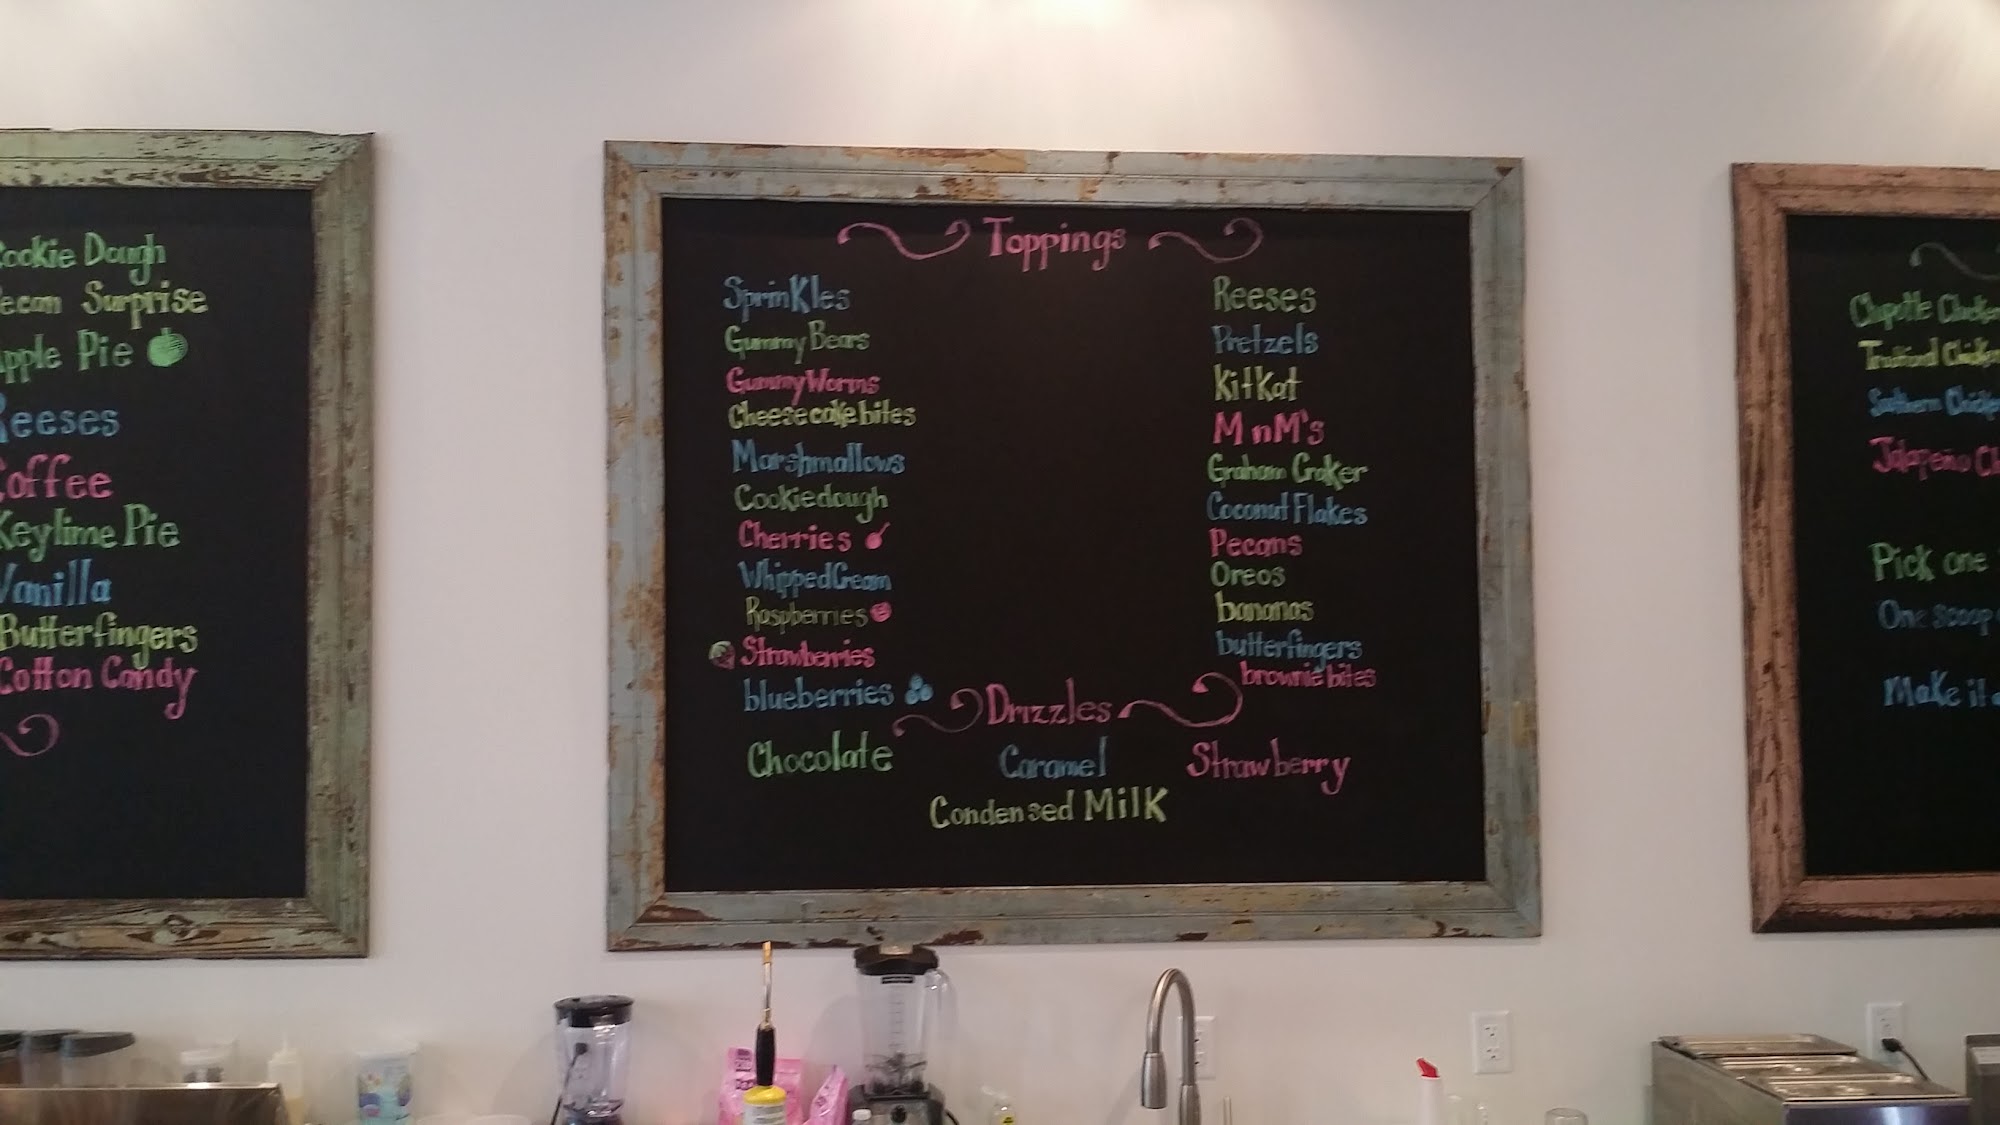 ookie Dough
ecan Surprise
pple Pie
Reeses
Coffee
Keylime Pie
Vanilla
Butterfingers
Cotton Candy
Toppings
Sprinkles
Gummy Bears
Gummy Worms
Cheesecake bites
Marshmallows
Cookiedough
Cherries
Whipped Cream
Raspberries
Strawberries
blueberries
Reeses
Pretzels
KitKat
MnM's
Graham Craker
Coconut Flakes
Pecans
Oreos
bananas
butterfingers
brownie bites
Drizzles
Chocolate Caramel Strawberry
Condensed Milk
Chipotle Chicken
Traditional Chicken
Southern Chicken
Jalapeño Ch
Pick one
One scoop
Make it a